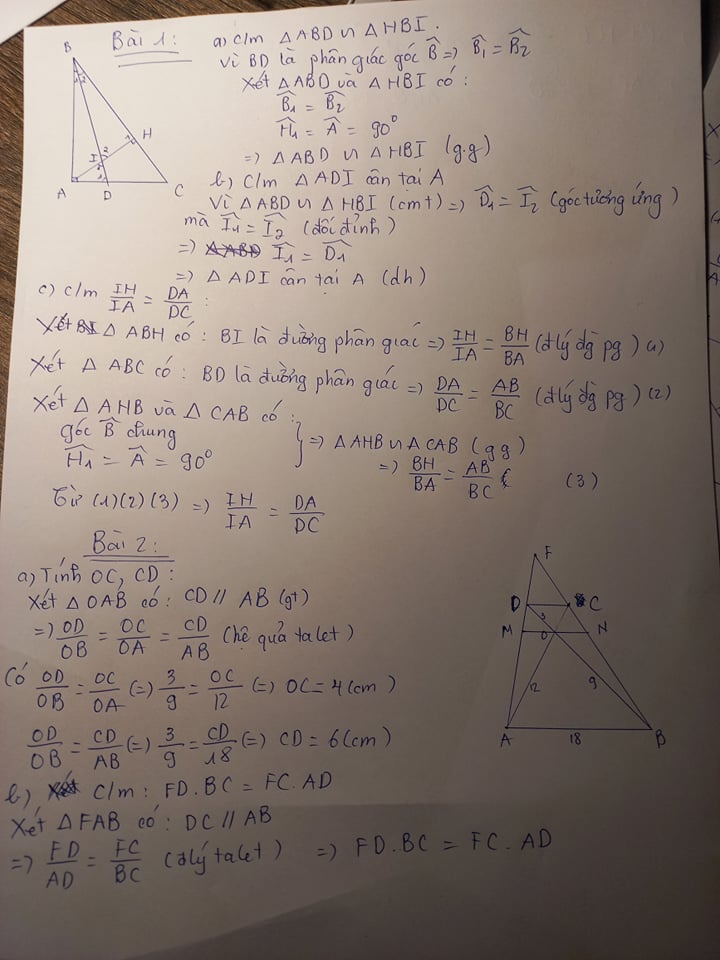 Bài 1:
a) c/m △ABD ∽ △HBI.
Vì BD là phân giác góc B̂ => B̂₁ = B̂₂
Xét △ABD và △HBI có:
B̂₁ = B̂₂
Ĥ₁ = Â = 90⁰
=> △ABD ∽ △HBI (g.g)
b) C/m △ADI cân tại A
Vì △ABD ∽ △HBI (cmt) => D̂₁ = Î₂ (góc tương ứng)
mà Î₁ = Î₂ (đối đỉnh)
=> Î₁ = D̂₁
=> △ADI cân tại A (dh)
c) c/m IH/IA = DA/DC :
Xét △ABH có: BI là đường phân giác => IH/IA = BH/BA (đlý đg pg) (1)
Xét △ABC có: BD là đường phân giác => DA/DC = AB/BC (đlý đg pg) (2)
Xét △AHB và △CAB có:
góc B̂ chung
Ĥ₁ = Â = 90⁰
} => △AHB ∽ △CAB (gg)
=> BH/BA = AB/BC (3)
Từ (1)(2)(3) => IH/IA = DA/DC
B
1 2
H
1
I 2
1
1
A D C
Bài 2:
a) Tính OC, CD:
Xét △OAB có: CD // AB (gt)
=> OD/OB = OC/OA = CD/AB (hệ quả talet)
Có OD/OB = OC/OA (=) 3/9 = OC/12 (=) OC = 4 (cm)
OD/OB = CD/AB (=) 3/9 = CD/18 (=) CD = 6 (cm)
b) C/m: FD.BC = FC.AD
Xét △FAB có: DC // AB
=> FD/AD = FC/BC (đlý talet) => FD.BC = FC.AD
F
D C
3
M O N
12 9
A 18 B